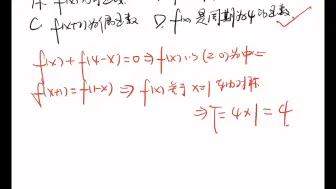 C. f(x+2)为偶函数 D. f(x)是周期为4的函数
f(x)+f(4-x)=0⇒f(x)以(2,0)为中心
f(x+1)=f(1-x)⇒f(x)关于x=1轴对称
⇒T=4×1=4